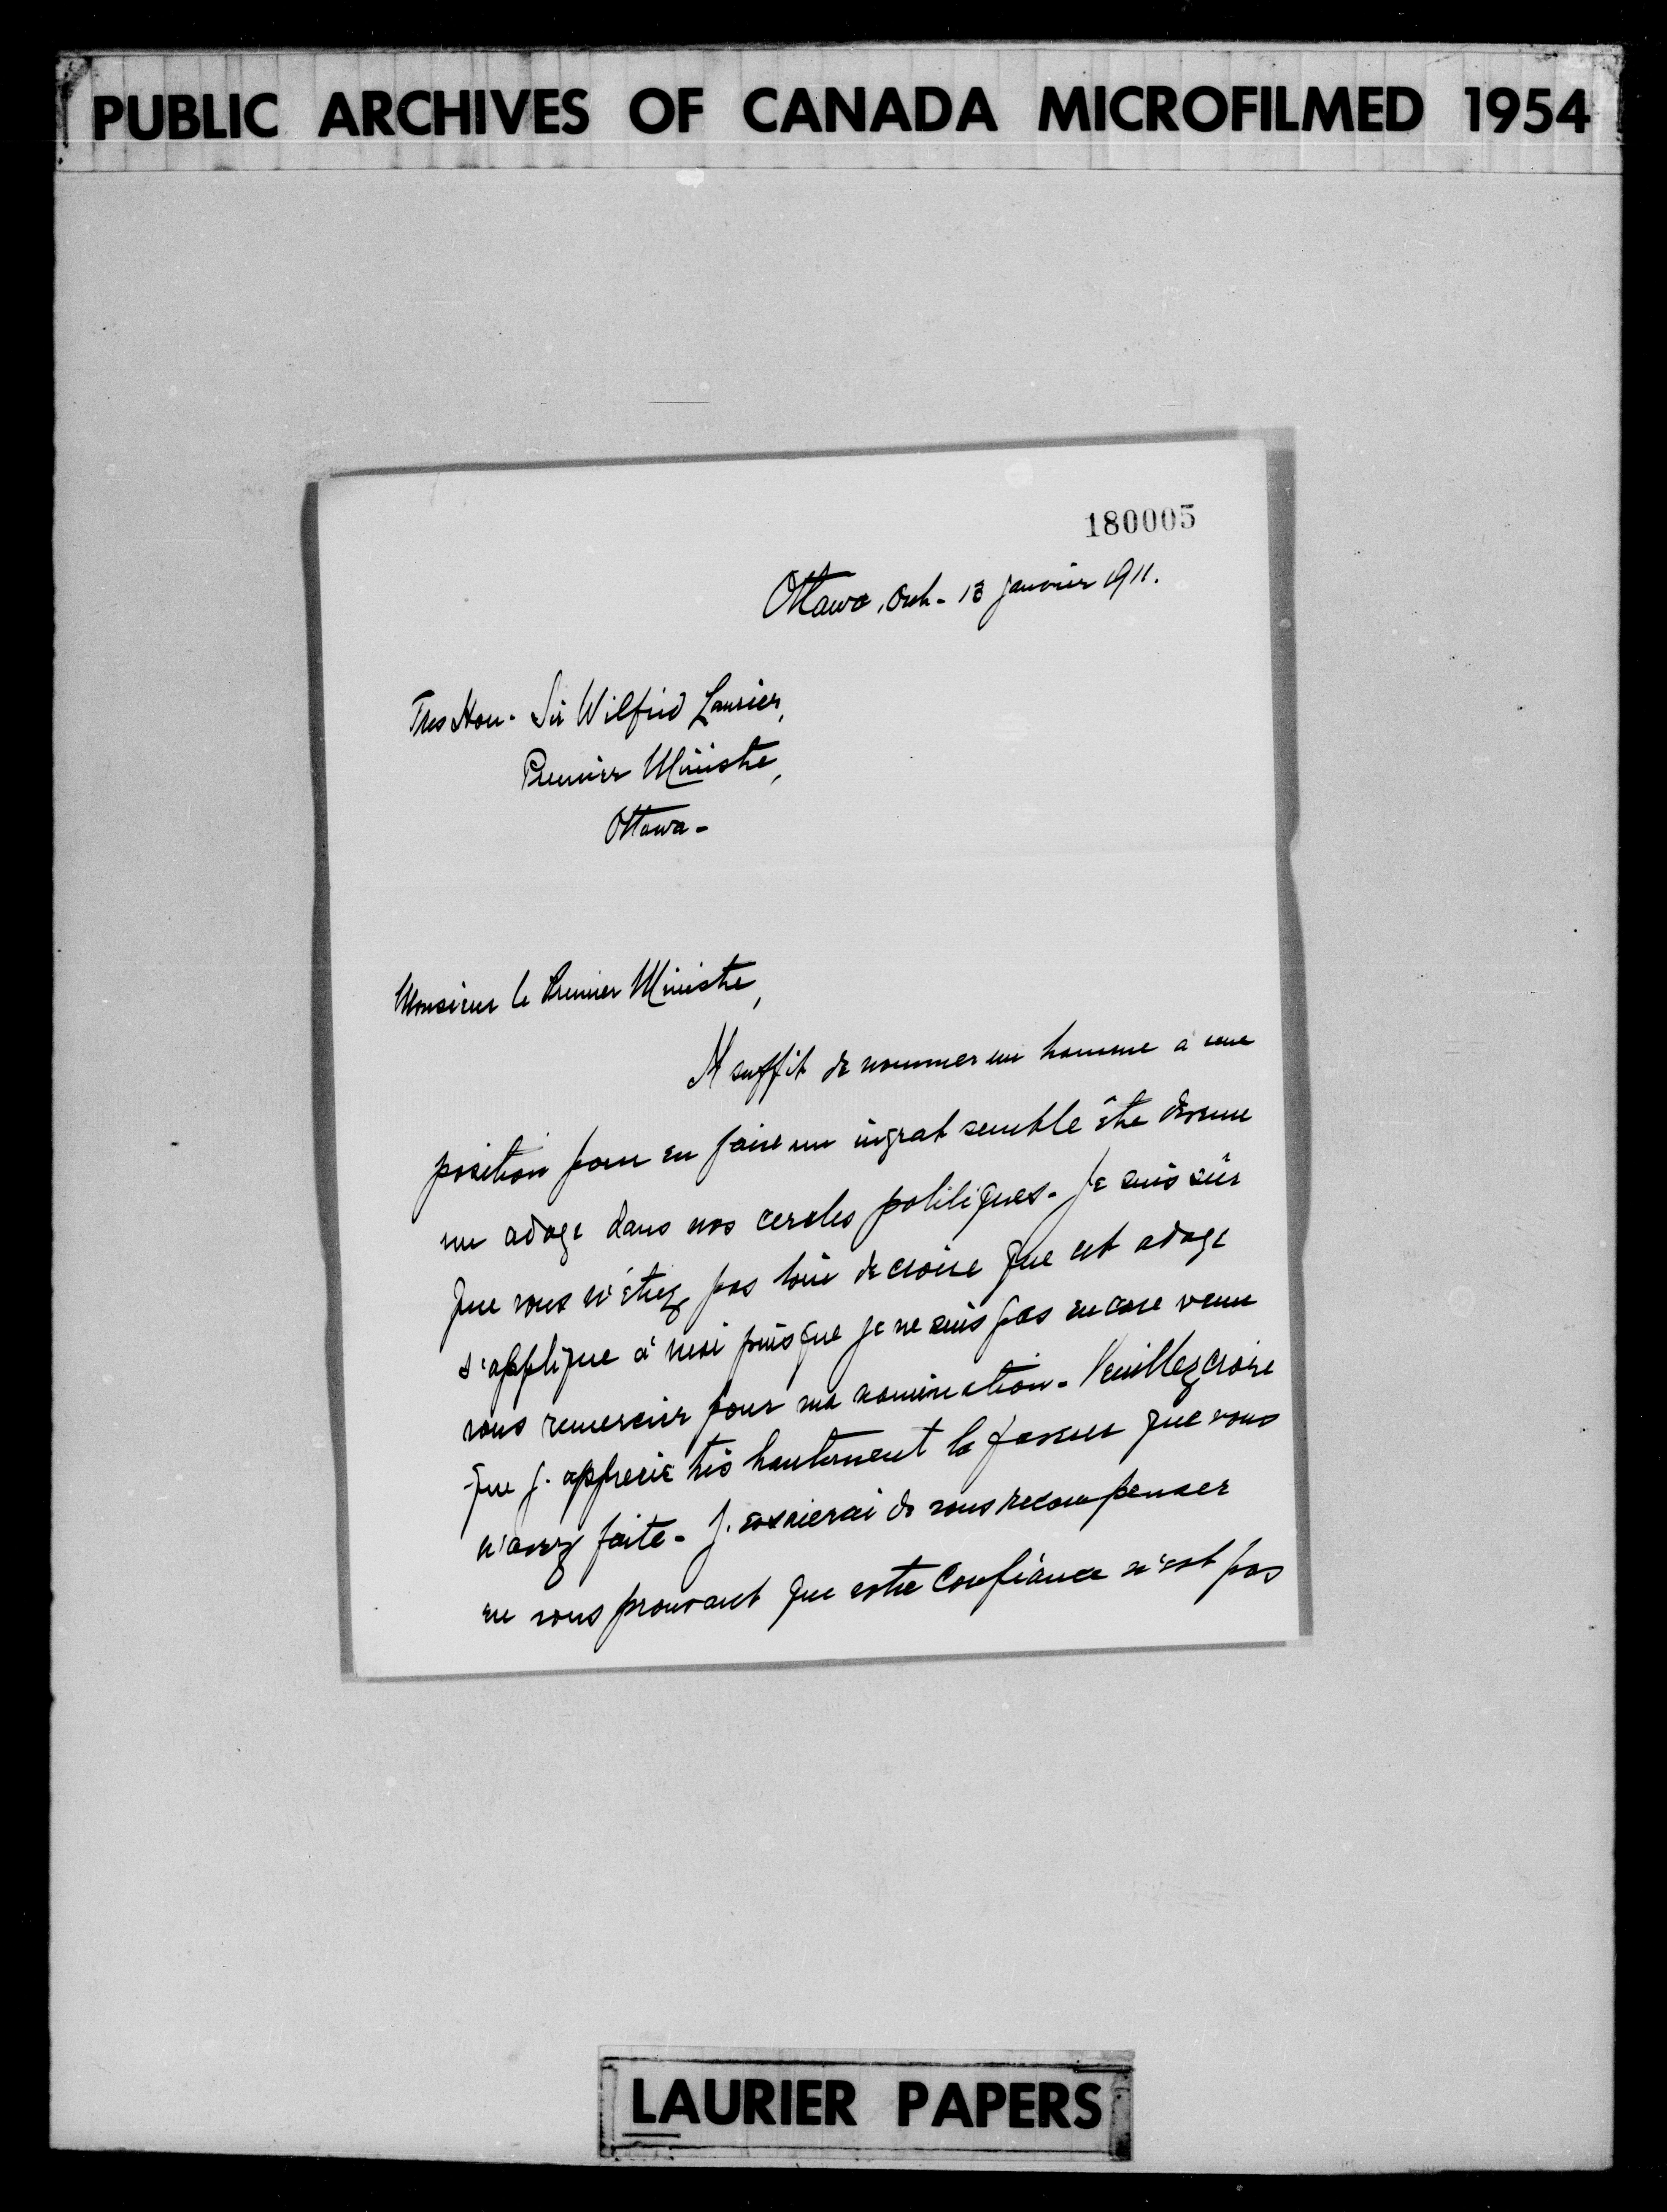 PUBLIC ARCHIVES OF CANADA MICROFILMED 1954
180005
Ottawa, Ont- 13 janvier 1911.
Tres Hon. Sir Wilfrid Laurier,
Premier Ministre,
Ottawa-
Monsieur le Premier Ministre,
Il suffit de nommer un homme à une
position pour en faire un ingrat semble être devenu
un adage dans nos cercles politiques. Je suis sûr
que vous n'étiez pas loin de croire que cet adage
s'applique à moi puisque je ne suis pas encore venu
vous remercier pour ma nomination. Veuillez croire
que j. apprecie très hautement la faveur que vous
m'avez faite. J. essaierai de vous recompenser
en vous prouvant que votre confiance n'est pas
LAURIER PAPERS